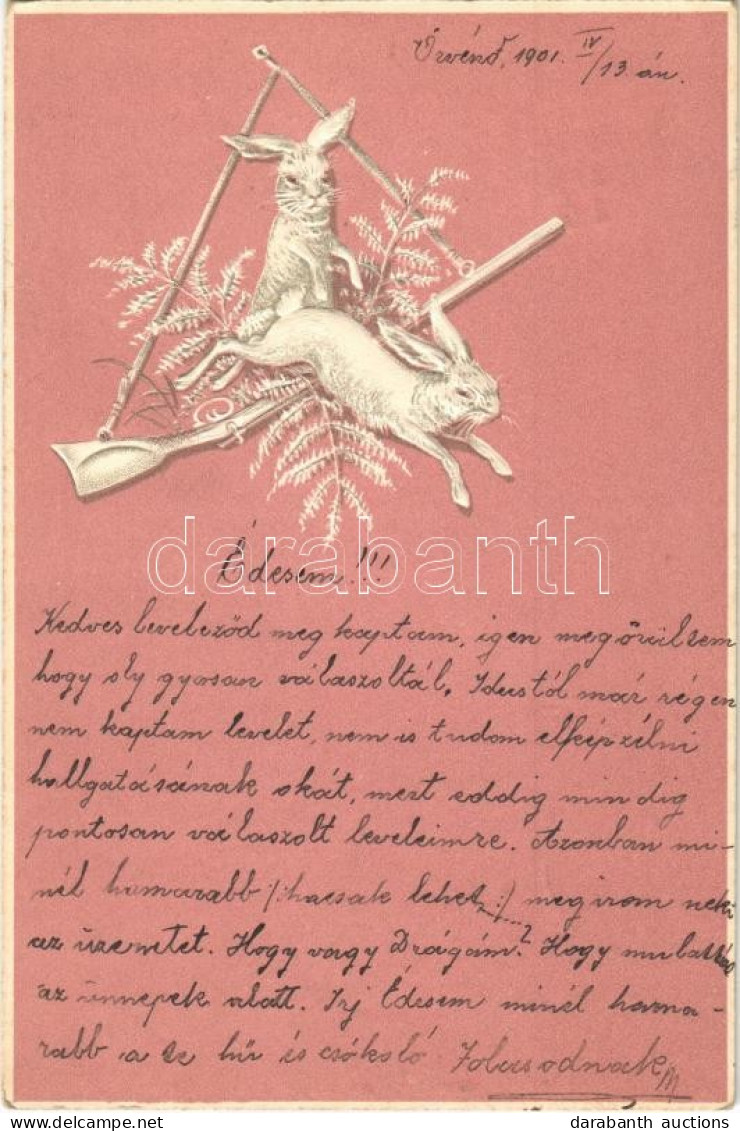 Örvénd, 1901. IV/13.án.
darabanth
Édesem!!!
Kedves leveleződ meg kaptam, igen megörültem
hogy oly gyorsan válaszoltál. Idustól már régen
nem kaptam levelet, nem is tudom elképzélni
hallgatásának okát, mert eddig mindig
pontosan válaszolt leveleimre. Azonban mi-
nél hamarabb /:hacsak lehet:/ megirom neki
az üzenetet. Hogy vagy Drágám? Hogy mulattál
az ünnepek alatt. Irj Édesem minél hama-
rabb a te hű és csókoló
© darabanth auctions
darabanth auctions